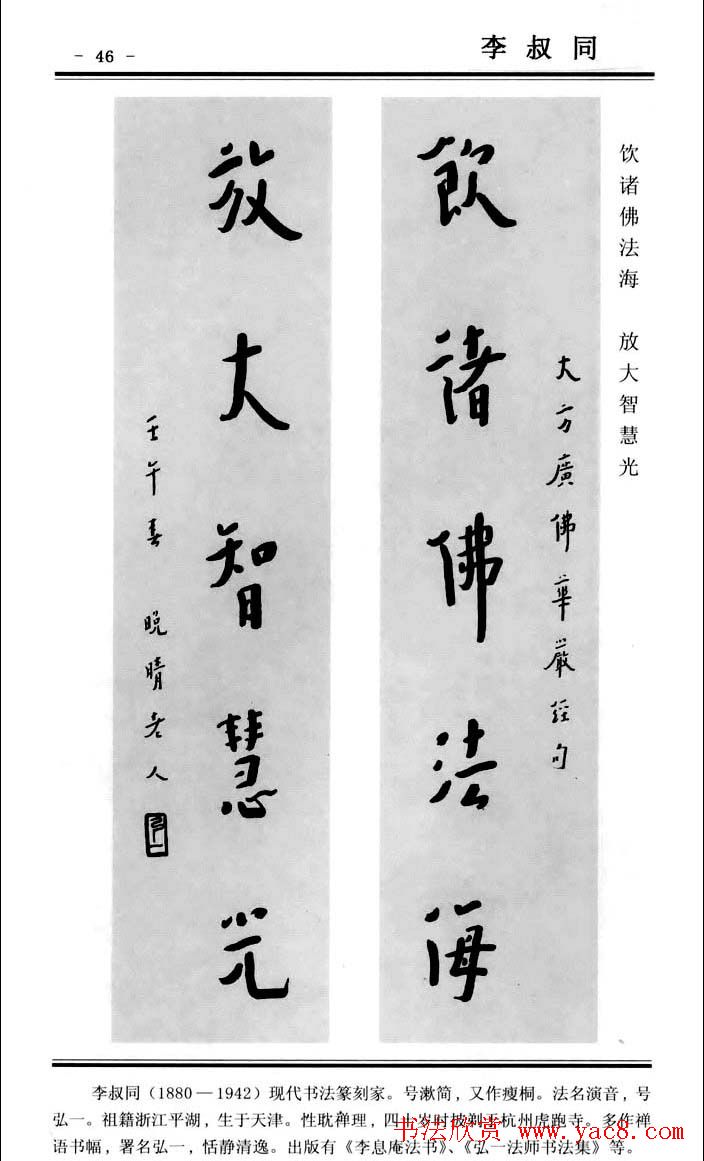 - 46 -
李叔同
饮诸佛法海 放大智慧光
大方廣佛華嚴經句
飲諸佛法海
放大智慧光
壬午春 晚晴老人
弘一
李叔同（1880—1942）现代书法篆刻家。号漱简，又作瘦桐。法名演音，号
弘一。祖籍浙江平湖，生于天津。性耽禅理，四十岁时披剃于杭州虎跑寺。多作禅
语书幅，署名弘一，恬静清逸。出版有《李息庵法书》、《弘一法师书法集》等。
书法欣赏 www.yac8.com